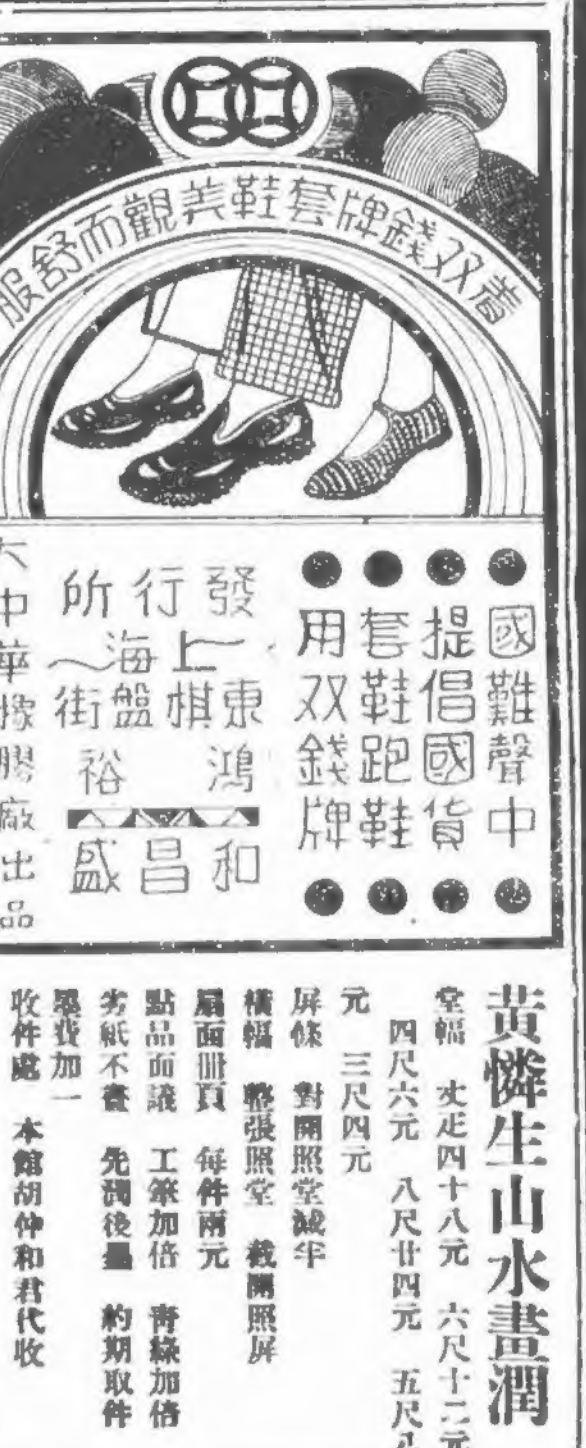 着双錢牌套鞋美觀而舒服
國難聲中
提倡國貨
套鞋跑鞋
用双錢牌
發行所
上海
東棋盤街
鴻裕
和昌盛
大中華橡膠廠出品
黃憐生山水畫潤
堂幅 丈疋四十八元 六尺十二元
四尺六元 八尺廿四元 五尺八
元 三尺四元
屏條 對開照堂減半
橫幅 整張照堂 截開照屏
扇面冊頁 每件兩元
點品面議 工筆加倍 青綠加倍
劣紙不畫 先潤後墨 約期取件
墨費加一
收件處 本館胡仲和君代收